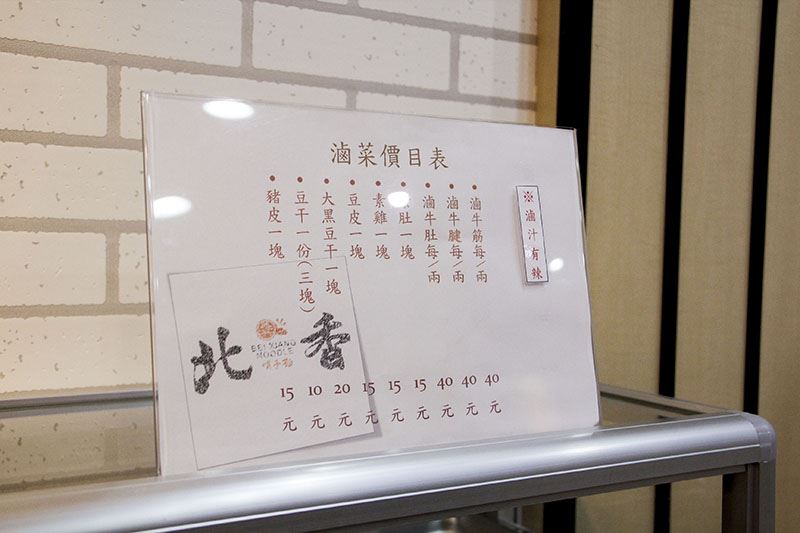 滷菜價目表
滷牛筋每/兩 40元
滷牛腱每/兩 40元
滷牛肚每/兩 40元
肚一塊 15元
素雞一塊 15元
豆皮一塊 15元
大黑豆干一塊 20元
豆干一份(三塊) 10元
豬皮一塊 15元
※滷汁有辣
北香
BEI XIANG
NOODLE